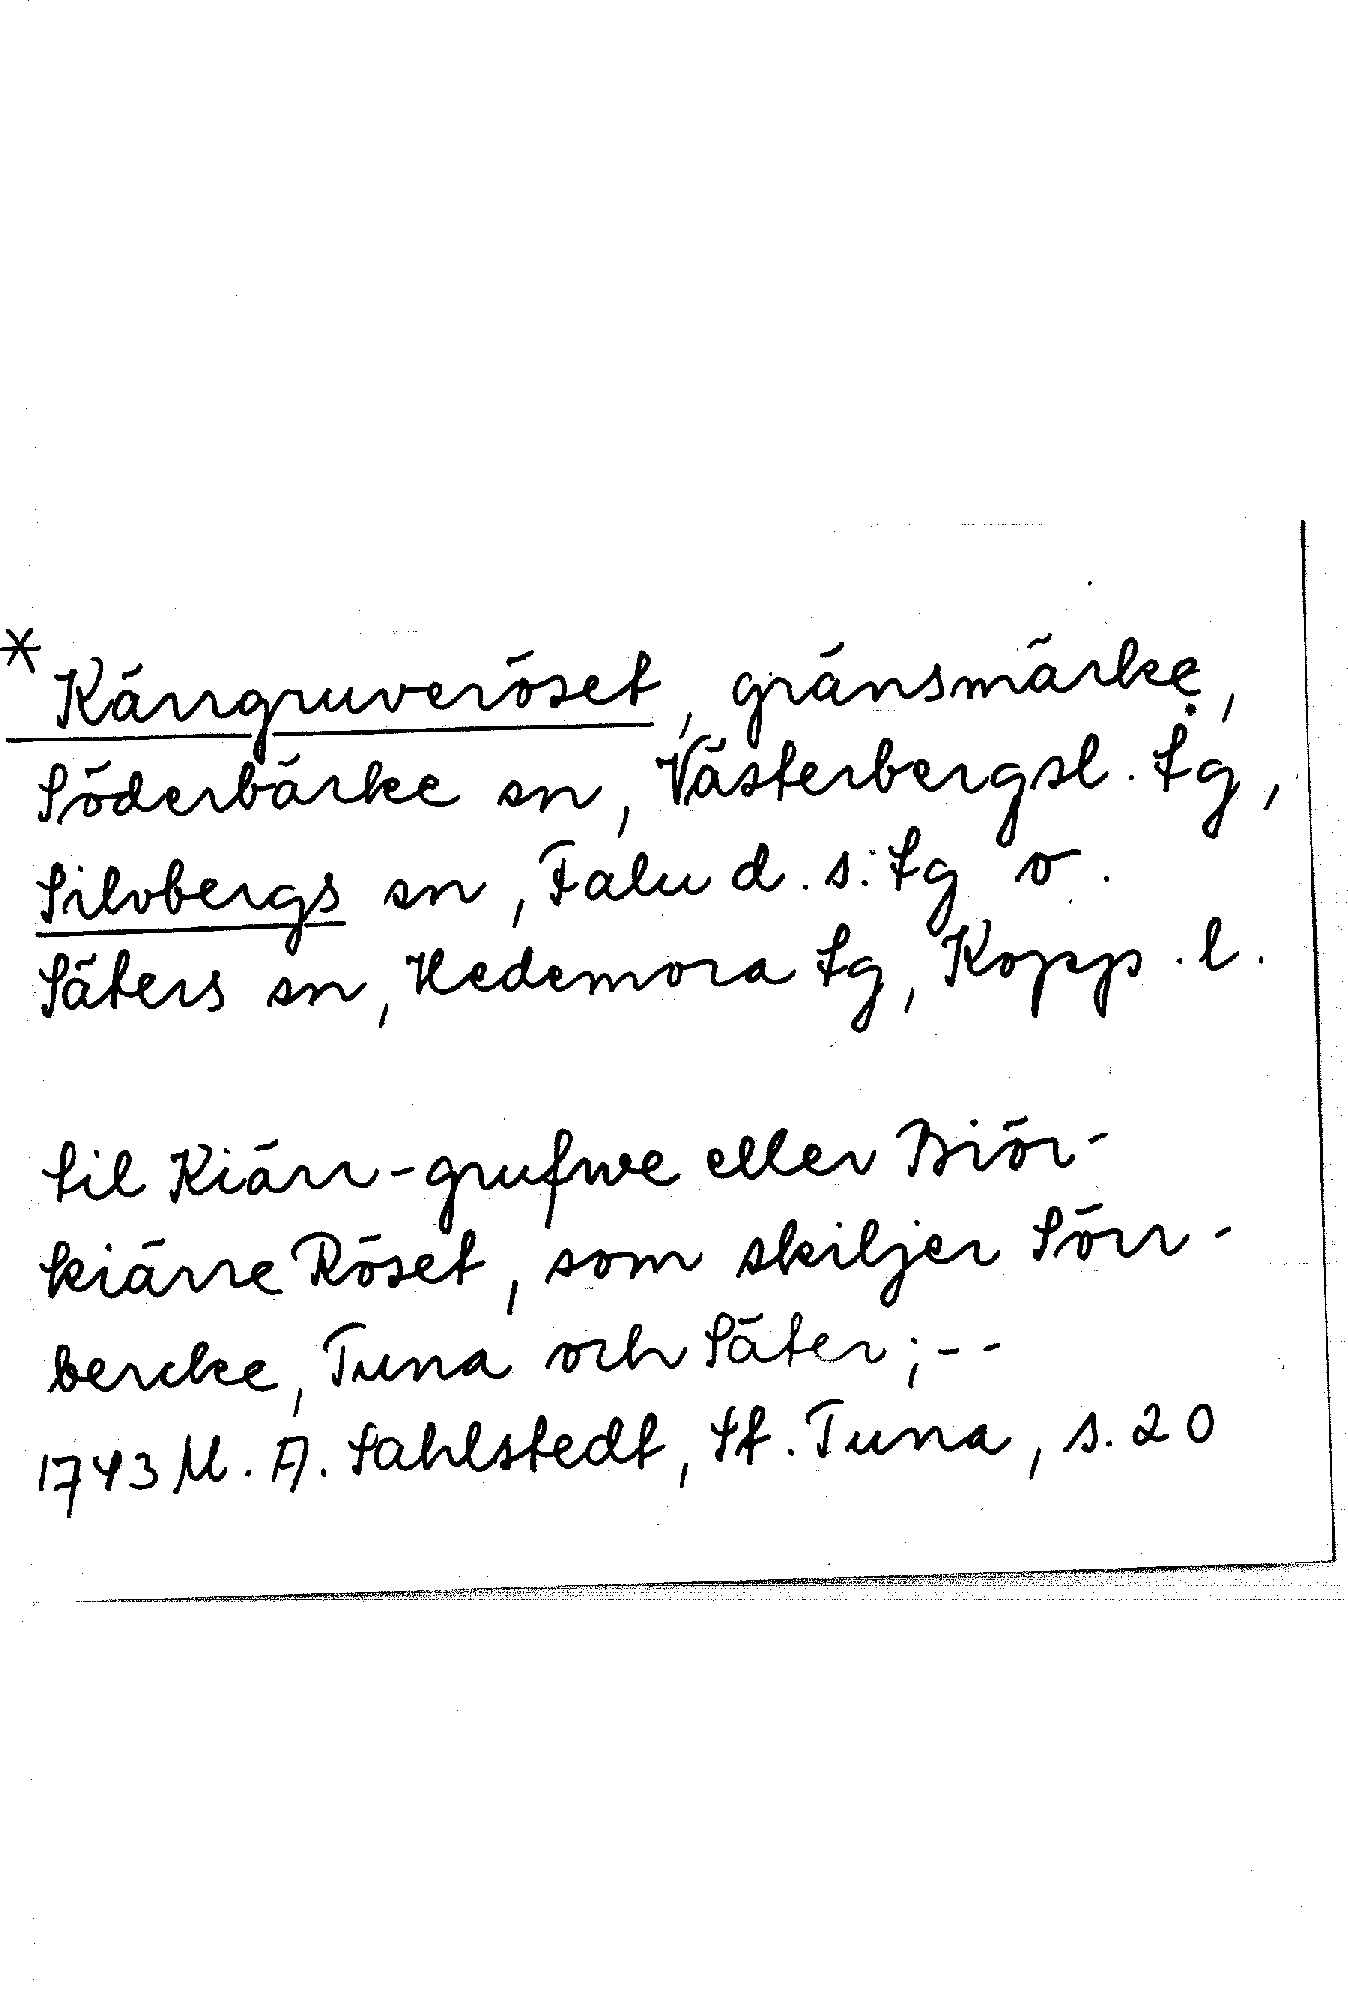 *Kärrgruveröset, gränsmärke,
Söderbärke sn, Västerbergsl. tg,
Silvbergs sn, Falu d. s. tg o.
Säters sn, Hedemora tg, Kopp. l.
til Kiärr-grufwe eller Biör-
kiärre Röset, som skiljer Sörr-
bercke, Tuna och Säter; --
1743 M. A. Sahlstedt, St. Tuna, s. 20